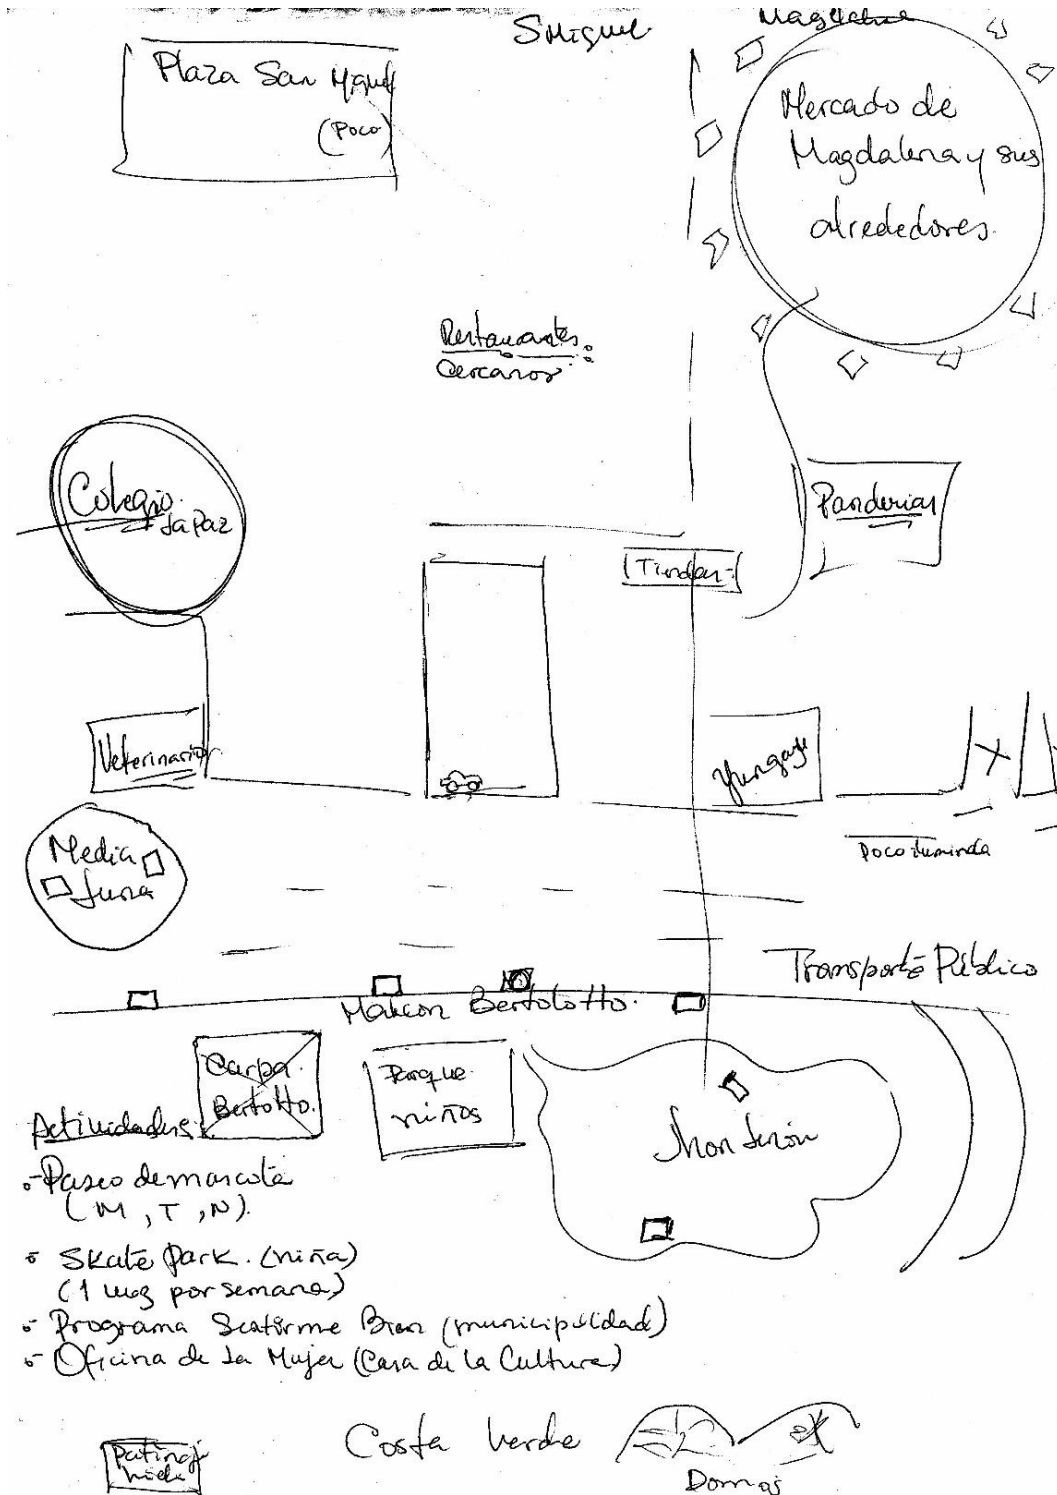 SMiguel
Magdalena
Plaza San Miguel
(Poco)
Mercado de
Magdalena y sus
alrededores.
Restaurantes
Cercanos
Colegio
La Paz
Panderias
Tiendas
Veterinarior
Yungay
Media
Luna
Transporte Público
Malecon Bertolotto.
Carpa
Bertotto.
Parque
niños
Jhon Lenón
Actividades:
- Paseo de mascota
(M, T, N).
Skate Park. (niña)
(1 vez por semana)
- Programa Sentirme Bien (municipalidad)
- Oficina de la Mujer (Casa de la Cultura)
Patinaj
Costa Verde
Domos